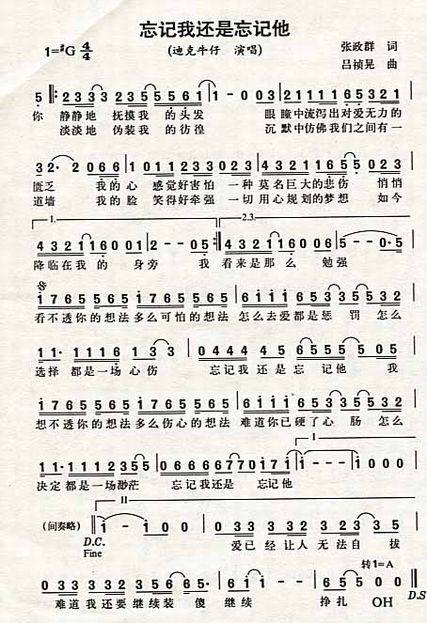 忘记我还是忘记他
1=♯G 4/4 (迪克牛仔 演唱) 张政群 词
吕祯晃 曲
5 ‖: 2333 2355561 | 1 - 0 03 | 21111165321
你 静静地 抚摸我 的头发 眼 瞳中流泻出对爱无力的
淡淡地 伪装我 的彷徨 沉 默中仿佛我们之间有一
32· 2 066 | 1 011233023 | 4321165 5 023
匮乏 我的心 感觉好害怕 一种 莫名巨大的悲伤 悄悄
道墙 我的脸 笑得好牵强 一切 用心规划的梦想 如今
1. 2.3.
43211160001 | 2 - - 05 :‖ 43211160006 | 5 - - 0·5
降临在我 的 身旁 我 看来是那 么 勉强
17655565 17655565 | 6111 6533 332
看不透你的想法多么可怕的想法 怎么去爱都是惩 罚 怎么
11· 1116 1 33 | 0444 45 6555 505
选择 都是一场 心伤 忘记我 还是 忘 记他 我
17655565 17655565 | 6111 6533 332
想不透你的想法多么伤心的想法 难道你已硬了心 肠 怎么
I
11·1112355 | 06666677 0171 | 1 - - - | 1000
决定 都是一场渺茫 忘记我还是 忘记他
II
(间奏略) ‖ 1 - 100 | 0 33 332 323 35
D.C. 爱已 经让人 无法自 拔
Fine
转1=A
0333332565· | 611 1 - - | 055500 ‖
难道 我还要 继续装 傻 继续 挣扎 OH D.S